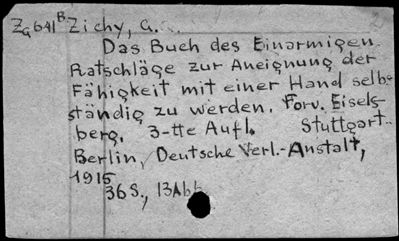 Za 641 B Zichy, G.
Das Buch des Einarmigen.
Ratschläge zur Aneignung der
Fähigkeit mit einer Hand selb-
ständig zu werden. Forv. Eisels-
berg. 3-tte Aufl. Stuttgart..
Berlin, Deutsche Verl.-Anstalt,
1915
36 S., 13 Abb